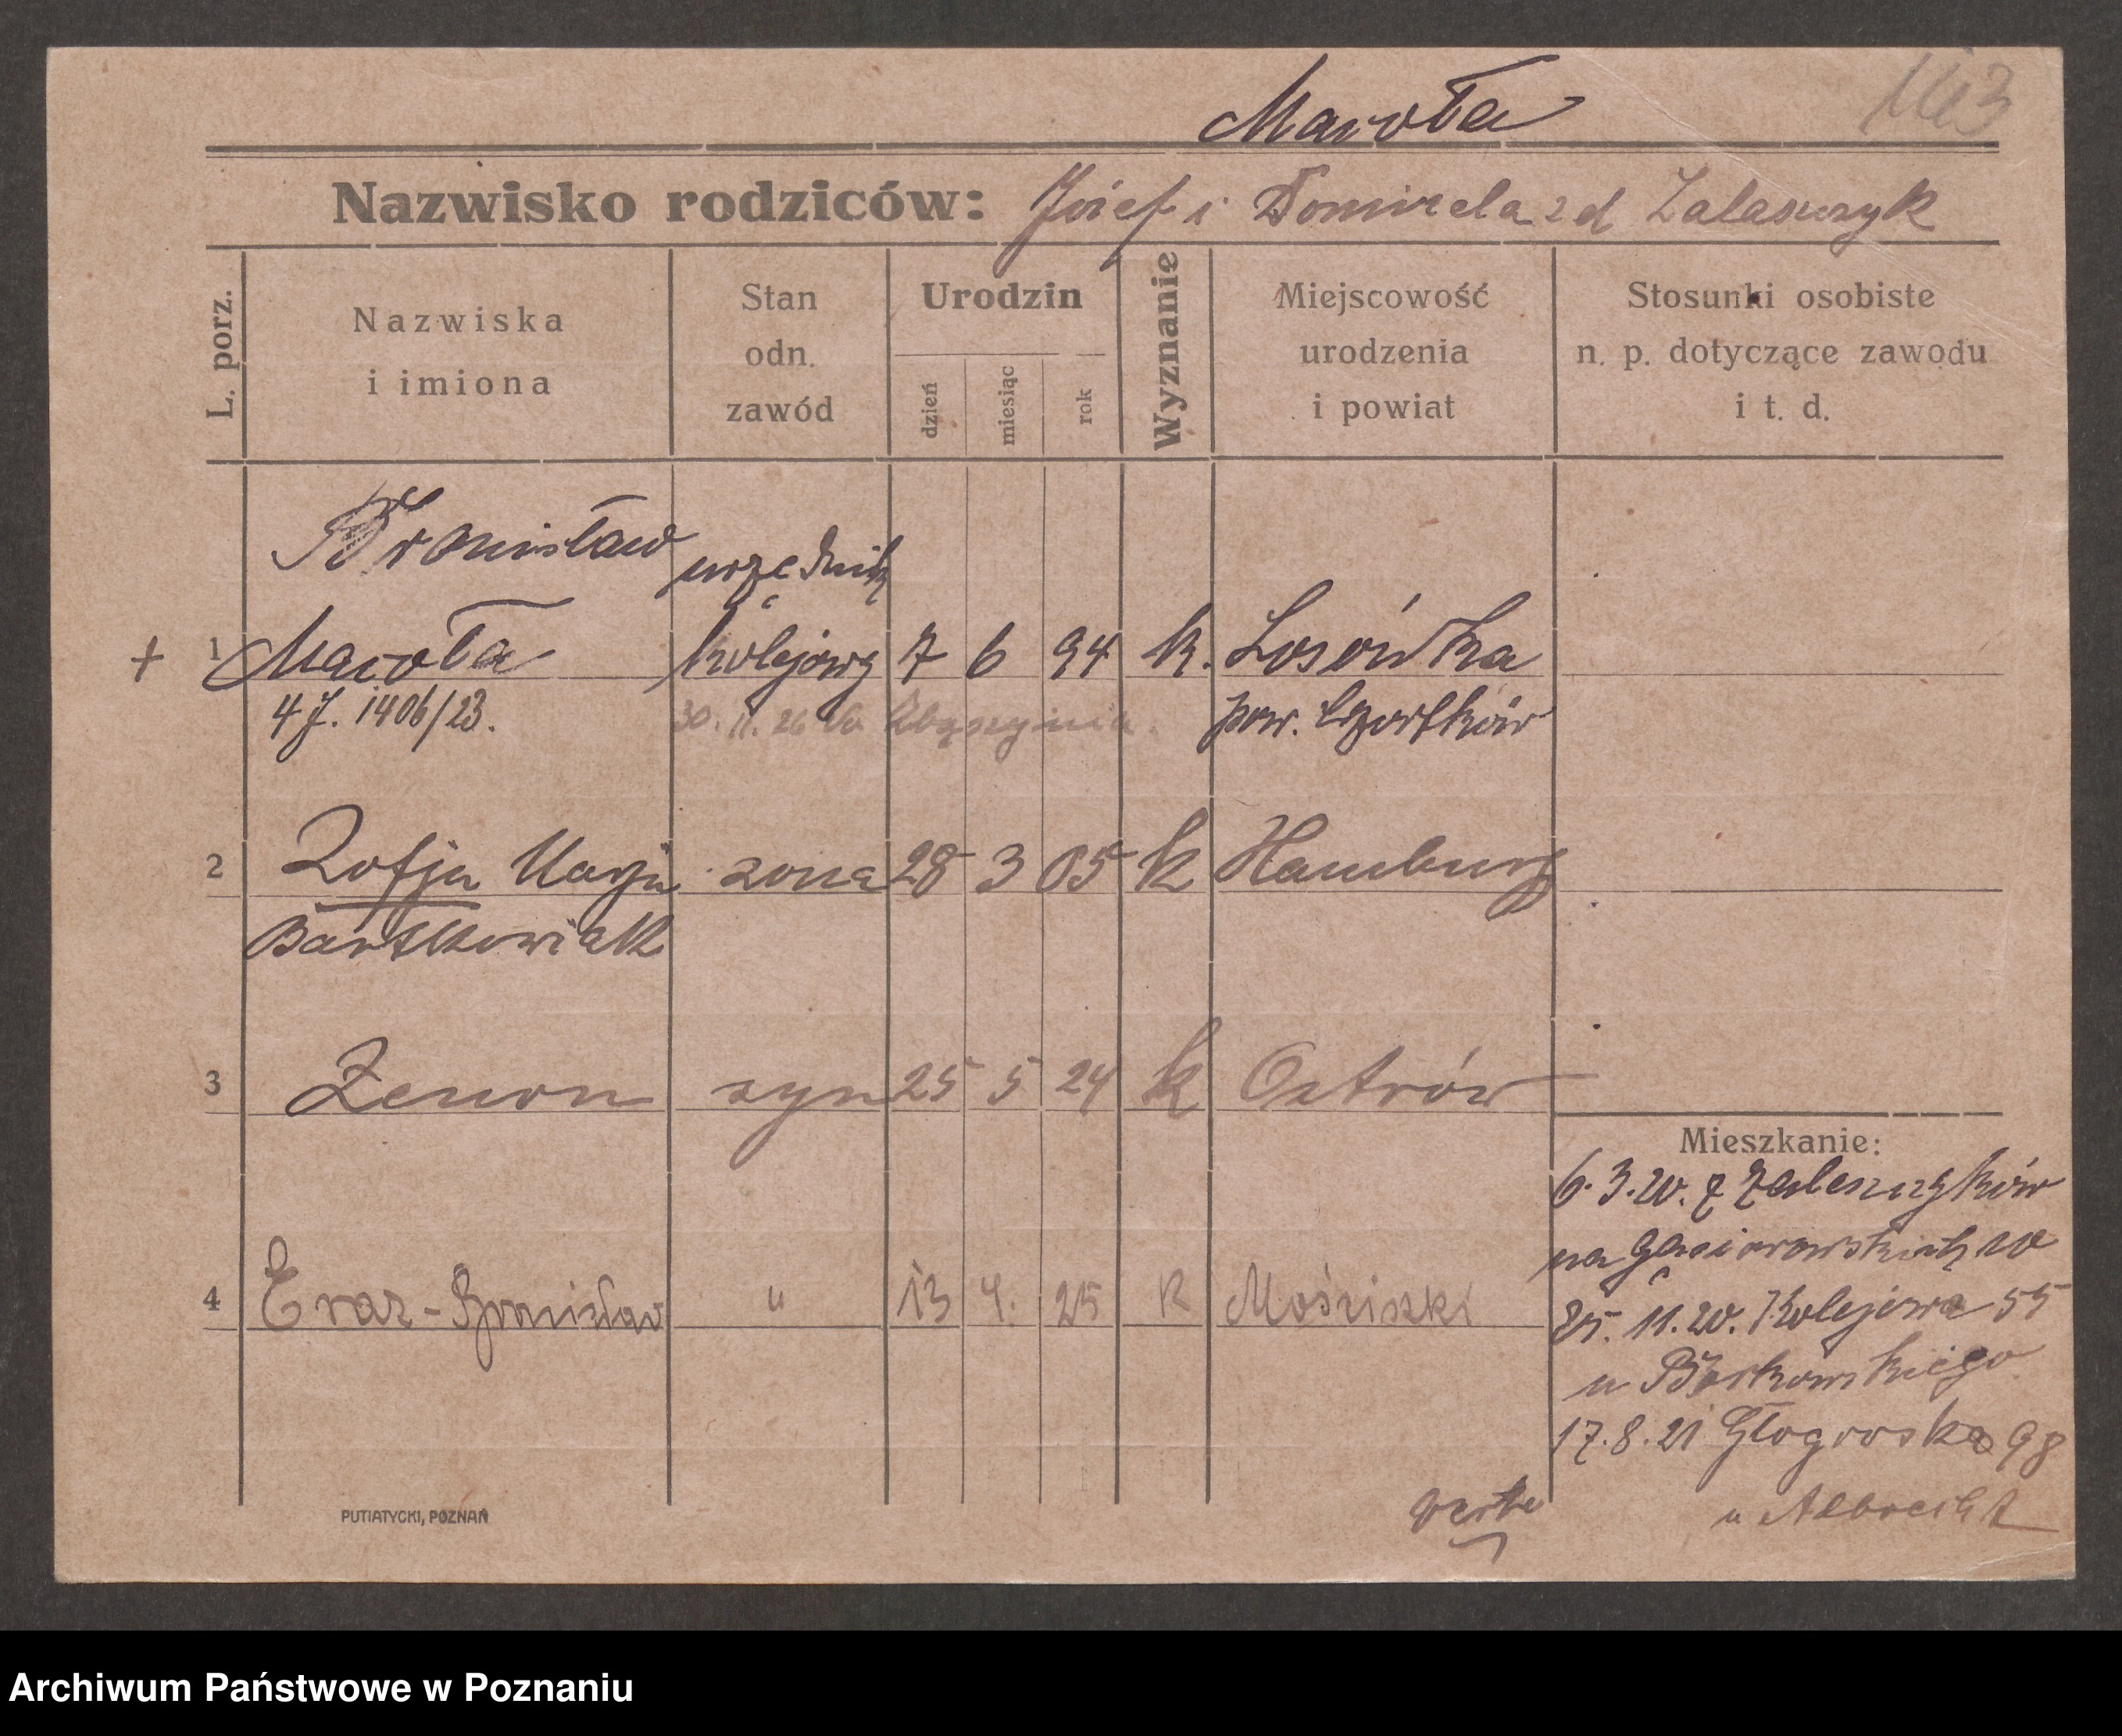 Maroła
Nazwisko rodziców: Józef i Domicela zd Zalaszczyk
L. porz.
Nazwiska
i imiona
Stan
odn.
zawód
Urodzin
dzień
miesiąc
rok
Wyznanie
Miejscowość
urodzenia
i powiat
Stosunki osobiste
n. p. dotyczące zawodu
i t. d.
Bronisław urzędnik
+ 1 Maroła kolejowy 7 6 94 k. Losówka
4 J. 1406/23. 30. 11. 26 do Zbąszynia. pow. Czortków
2 Zofja Marja zona 28 3 05 k Hamburg
Bartkowiak
3 Zenon syn 25 5 24 k Ostrów
Mieszkanie:
6. 3. 20. z Zaleszczyków
na Gąsiorowskich 10
4 Eraz-Bronisław " 13 4. 25 k Mościszki
25. 11. 20. Kolejowa 55
u Borkowskiego
17. 8. 21 Głogowska 98
u Albrecht
verte
PUTIATYCKI, POZNAŃ
Archiwum Państwowe w Poznaniu